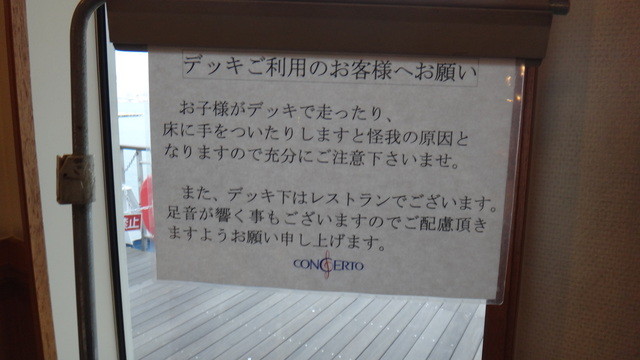 デッキご利用のお客様へお願い
お子様がデッキで走ったり、
床に手をついたりしますと怪我の原因と
なりますので充分にご注意下さいませ。
また、デッキ下はレストランでございます。
足音が響く事もございますのでご配慮頂き
ますようお願い申し上げます。
CONCERTO
止